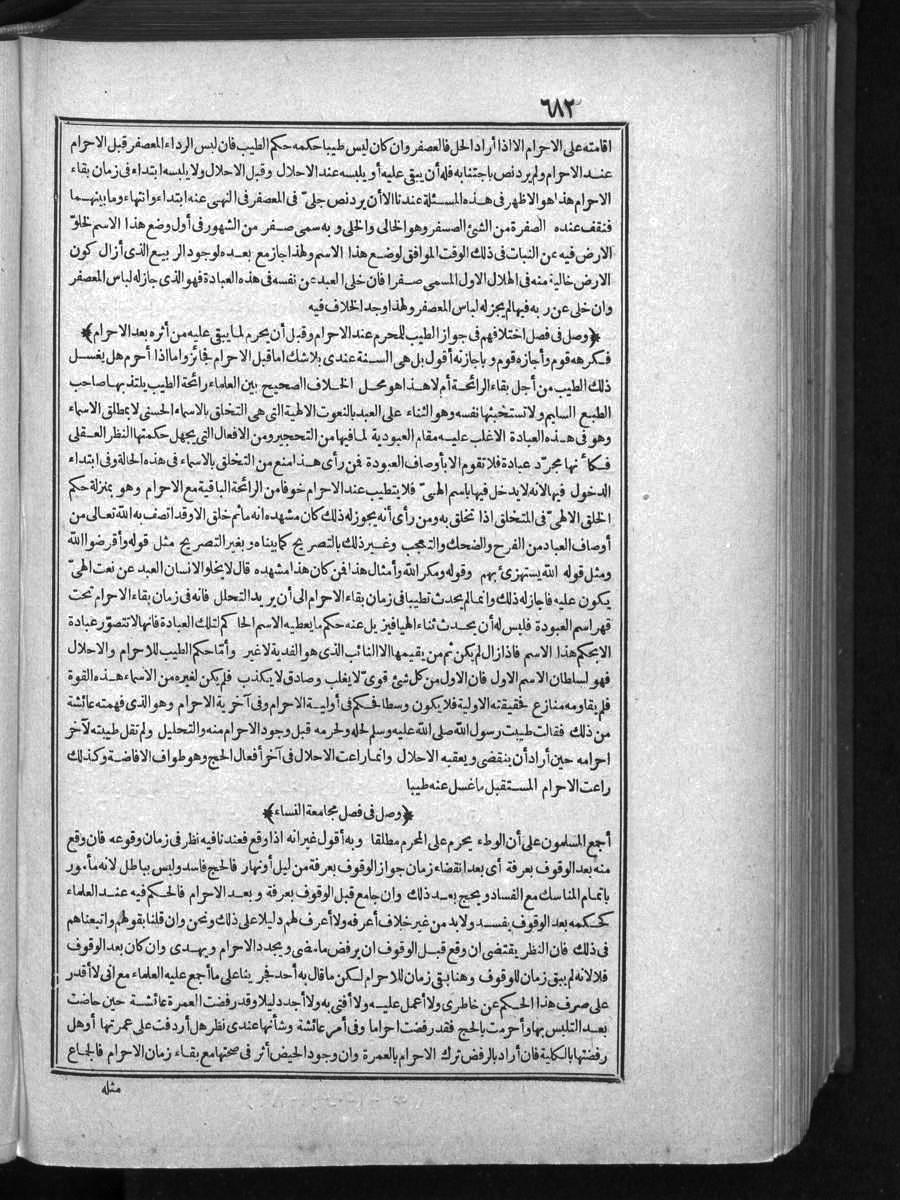 ٦٨٢
اقامته على الاحرام الا اذا أراد الحل فالمعصفر وان كان ليس طيبا حكمه حكم الطيب فان لبس الرداء المعصفر قبل الاحرام
عند الاحرام ولم يرد نص باجتنابه فله أن يبقى عليه أو يلبسه عند الاحلال وقبل الاحلال ولا يلبسه ابتداء في زمان بقاء
الاحرام هذا هو الاظهر في هذه المسئلة عندنا الا أن يرد نص جلىّ في المعصفر في النهى عنه ابتداء وانتهاء وما بينهما
فنقف عنده الصفرة من الشئ المسفر وهو الخالى والخلى و به سمى صفر من الشهور في أول وضع هذا الاسم لخلوّ
الارض فيه عن النبات في ذلك الوقت الموافق لوضع هذا الاسم ولهذا جاز مع بعده لوجود الربيع الذى أزال كون
الارض خالية منه في الهلال الاول المسمى صفرا فان خلى العبد عن نفسه في هذه العبادة فهو الذى جاز له لباس المعصفر
وان خلى عن ربه فيها لم يجز له لباس المعصفر ولهذا وجد الخلاف فيه
﴿وصل في فصل اختلافهم في جواز الطيب للمحرم عند الاحرام وقبل أن يحرم لما يبقى عليه من أثره بعد الاحرام﴾
فكرهه قوم وأجازه قوم و باجازته أقول بل هى السنة عندى بلا شك اما قبل الاحرام فجائز واما اذا أحرم هل يغسل
ذلك الطيب من أجل بقاء الرائحة أم لا هذا هو محل الخلاف الصحيح بين العلماء رائحة الطيب يلتذ بها صاحب
الطبع السليم ولا تستخبثها نفسه وهو الثناء على العبد بالنعوت الالهية التى هى التخلق بالاسماء الحسنى لا بمطلق الاسماء
وهو في هذه العبادة الاغلب عليه مقام العبودية لما فيها من التحجير ومن الافعال التى يجهل حكمتها النظر العقلى
فكأنها مجرّد عبادة فلا تقوم الا بأوصاف العبودة فمن رأى هذا منع من التخلق بالاسماء في هذه الحالة وفى ابتداء
الدخول فيها لانه لا يدخل فيها باسم الهىّ فلا يتطيب عند الاحرام خوفا من الرائحة الباقية مع الاحرام وهو بمنزلة حكم
الخلق الالهىّ في المتخلق اذا تخلق به ومن رأى أنه يجوز له ذلك كان مشهده انه ما ثم خلق الا وقد اتصف به الله تعالى من
أوصاف العباد من الفرح والضحك والتعجب وغير ذلك بالتصريح كما بيناه و بغير التصريح مثل قوله وأقرضوا الله
ومثل قوله الله يستهزئ بهم وقوله ومكر الله وأمثال هذا فمن كان هذا مشهده قال لا يخلو الانسان العبد عن نعت الهىّ
يكون عليه فأجاز له ذلك وانما لم يحدث تطيبا في زمان بقاء الاحرام الى أن يريد التحلل فانه في زمان بقاء الاحرام تحت
قهر اسم العبودة فليس له أن يحدث ثناء الهيا فيزيل عنه حكم ما يعطيه الاسم الحاكم لتلك العبادة فانها لا تتصوّر عبادة
الا بحكم هذا الاسم فاذا زال لم يكن ثم من يقيمها الا النائب الذى هو الفدية لا غير وأمّا حكم الطيب للاحرام والاحلال
فهو لسلطان الاسم الاول فان الاول من كل شئ قوىّ لا يغلب وصادق لا يكذب فلم يكن لغيره من الاسماء هذه القوة
فلم يقاومه منازع فحقيقته الاولية فلا يكون وسطا فحكم في أولية الاحرام وفى آخرية الاحرام وهو الذى فهمته عائشة
من ذلك فقالت طيبت رسول الله صلى الله عليه وسلم لحله ولحرمه قبل وجود الاحرام منه والتحليل ولم تقل طيبته لآخر
احرامه حين أراد أن ينقضى ويعقبه الاحلال وانما راعت الاحلال في آخر أفعال الحج وهو طواف الافاضة وكذلك
راعت الاحرام المستقبل ما غسل عنه طيبا
﴿وصل في فصل مجامعة النساء﴾
أجمع المسلمون على أن الوطء يحرم على المحرم مطلقا وبه أقول غير انه اذا وقع فعندنا فيه نظر في زمان وقوعه فان وقع
منه بعد الوقوف بعرفة أى بعد انقضاء زمان جواز الوقوف بعرفة من ليل أو نهار فالحج فاسد وليس بباطل لانه مأمور
باتمام المناسك مع الفساد ويحج بعد ذلك وان جامع قبل الوقوف بعرفة و بعد الاحرام فالحكم فيه عند العلماء
كحكمه بعد الوقوف يفسد ولا بد من غير خلاف أعرفه ولا أعرف لهم دليلا على ذلك ونحن وان قلنا بقولهم واتبعناهم
في ذلك فان النظر يقتضى ان وقع قبل الوقوف ان يرفض ما مضى ويجدد الاحرام ويهدى وان كان بعد الوقوف
فلا لانه لم يبق زمان للوقوف وهنا بقى زمان للاحرام لكن ما قال به أحد فجرينا على ما أجمع عليه العلماء مع انى لا أقدر
على صرف هذا الحكم عن خاطرى ولا أعمل عليه ولا أفتى به ولا أجد دليلا وقد رفضت العمرة عائشة حين حاضت
بعد التلبس بها وأحرمت بالحج فقد رفضت احراما وفى أمر عائشة وشأنها عندى نظر هل أردفت على عمرتها أو هل
رفضتها بالكلية فان أراد بالرفض ترك الاحرام بالعمرة وان وجود الحيض أثر في صحتها مع بقاء زمان الاحرام فالجماع
مثله